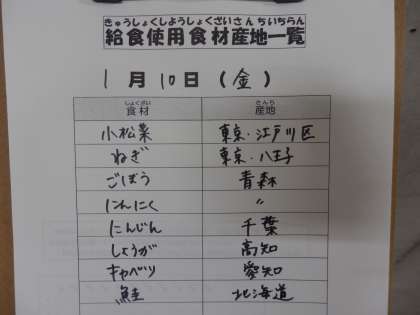 きゅうしょくしようしょくざいさんちいちらん
給食使用食材産地一覧
1月10日(金)
しょくざい さんち
食材 産地
小松菜 東京・江戸川区
ねぎ 東京・八王子
ごぼう 青森
にんにく 〃
にんじん 千葉
しょうが 高知
キャベツ 愛知
鮭 北海道